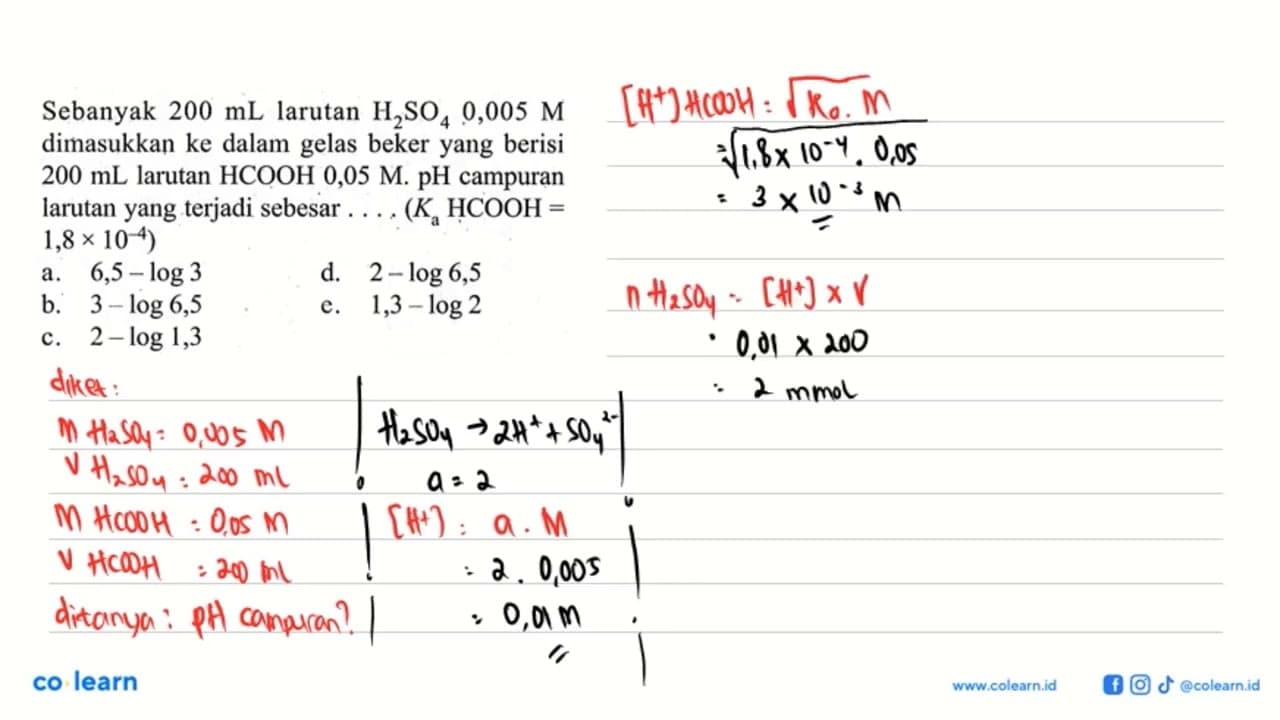 Sebanyak 200 mL larutan H₂SO₄ 0,005 M
dimasukkan ke dalam gelas beker yang berisi
200 mL larutan HCOOH 0,05 M. pH campuran
larutan yang terjadi sebesar . . . . (Kₐ HCOOH =
1,8 × 10⁻⁴)
a. 6,5 – log 3
b. 3 – log 6,5
c. 2 – log 1,3
d. 2 – log 6,5
e. 1,3 – log 2
diket:
M H₂SO₄ = 0,005 M
V H₂SO₄ = 200 ml
M HCOOH = 0,05 M
V HCOOH = 200 ml
ditanya: pH campuran?
H₂SO₄ → 2H⁺ + SO₄²⁻
a = 2
[H⁺] = a . M
= 2 . 0,005
= 0,01 M
[H⁺] HCOOH = √Ka . M
= √1,8 x 10⁻⁴ . 0,05
= 3 x 10⁻³ M
n H₂SO₄ = [H⁺] x V
= 0,01 x 200
= 2 mmol
co learn
www.colearn.id
@colearn.id